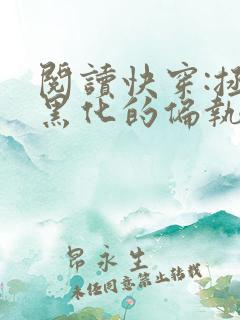 閱讀快穿:拯
黑化的偏執
昂永生
未經同意禁止轉載